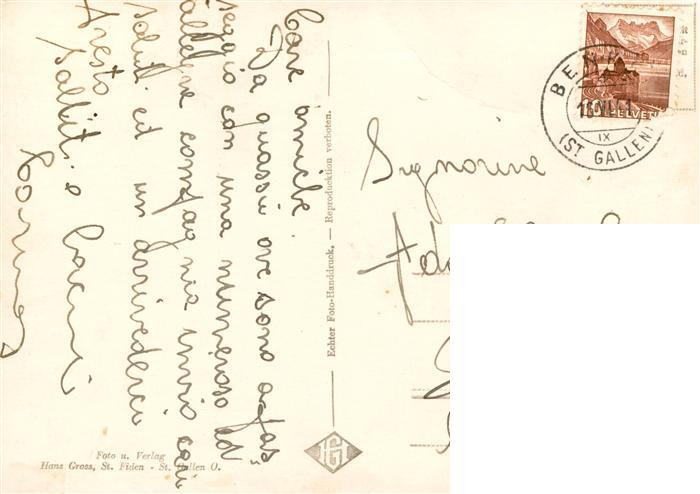 Care amiche.
Da quassù ove sono a pas=
seggio con una numerosa ed
allegra compagnia invio cari
saluti ed un arrivederci
Presto
Salluti e bacioni
Echter Foto-Handdruck. — Reproducktion verboten.
Foto u. Verlag
Hans Gross, St. Fiden - St. Gallen O.
HELVETIA
(ST GALLEN)
IX
Signorine